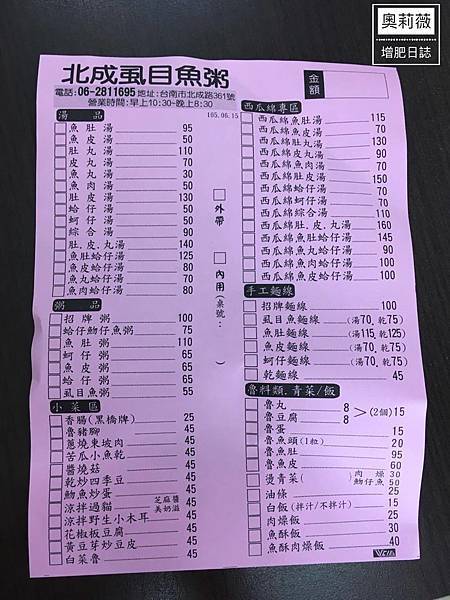 奧莉薇
增肥日誌
北成虱目魚粥
電話:06-2811695 地址:台南市北成路361號
營業時間:早上10:30~晚上8:30
金額
湯 品
105.06.15
魚肚湯 95
魚皮湯 50
肚丸湯 110
皮丸湯 70
魚丸湯 30
魚肉湯 50
肚皮湯 130
蛤仔湯 50
蚵仔湯 50
綜合湯 90
肚.皮.丸湯 140
魚肚蛤仔湯 125
魚皮蛤仔湯 80
魚丸蛤仔湯 70
魚肉蛤仔湯 80
粥 品
招牌粥 100
蛤仔魩仔魚粥 75
魚肚粥 110
蚵仔粥 65
魚皮粥 65
蛤仔粥 65
虱目魚粥 55
小菜區
香腸(黑橋牌) 25
魯豬腳 45
蔥燒東坡肉 45
苦瓜小魚乾 45
醬燒菇 45
乾炒四季豆 45
魩魚炒蛋 45
涼拌過貓 芝麻醬 美奶滋 45
涼拌野生小木耳 45
花椒板豆腐 45
黃豆芽炒豆皮 45
白菜魯 45
外帶
內用(桌號: )
西瓜綿專區
西瓜綿魚肚湯 115
西瓜綿魚皮湯 70
西瓜綿肚丸湯 130
西瓜綿皮丸湯 90
西瓜綿魚肉湯 70
西瓜綿肚皮湯 150
西瓜綿蛤仔湯 70
西瓜綿蚵仔湯 70
西瓜綿綜合湯 110
西瓜綿肚.皮.丸湯 160
西瓜綿魚肚蛤仔湯 145
西瓜綿魚丸蛤仔湯 90
西瓜綿魚肉蛤仔湯 100
西瓜綿魚皮蛤仔湯 100
手工麵線
招牌麵線 100
虱目魚麵線 (湯70,乾75)
魚肚麵線 (湯115,乾125)
魚皮麵線 (湯70,乾75)
蚵仔麵線 (湯70,乾75)
乾麵線 45
魯料類.青菜/飯
魯丸 8
魯豆腐 8 >(2個)15
魯蛋 15
魯魚頭(1粒) 20
魯魚肚 95
魯魚皮 60
燙青菜( ) 肉燥 30 魩仔魚 50
油條 25
白飯(拌汁/不拌汁) 15
肉燥飯 25
魚酥飯 30
魚酥肉燥飯 40